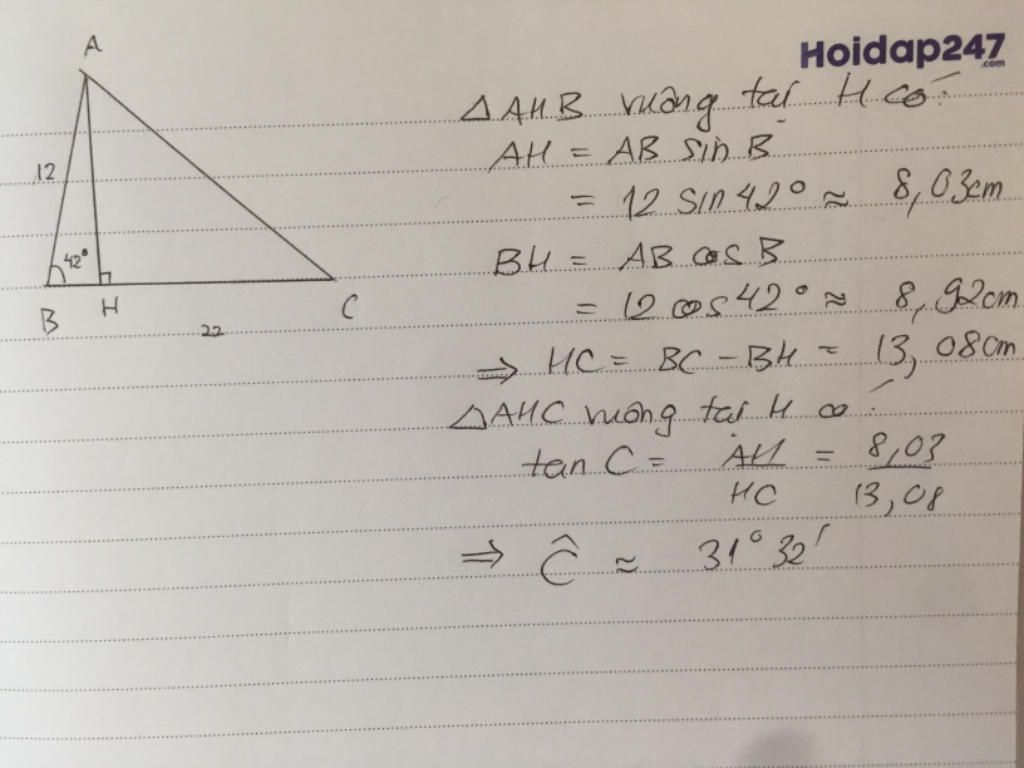 Hoidap247
.com
A
12
42°
B
H
22
C
△AHB vuông tại H có:
AH = AB sin B
= 12 sin 42° ≈ 8,03cm
BH = AB cos B
= 12 cos 42° ≈ 8,92cm
⇒ HC = BC - BH = 13,08cm
△AHC vuông tại H có:
tan C = AH/HC = 8,03/13,08
⇒ Ĉ ≈ 31°32'